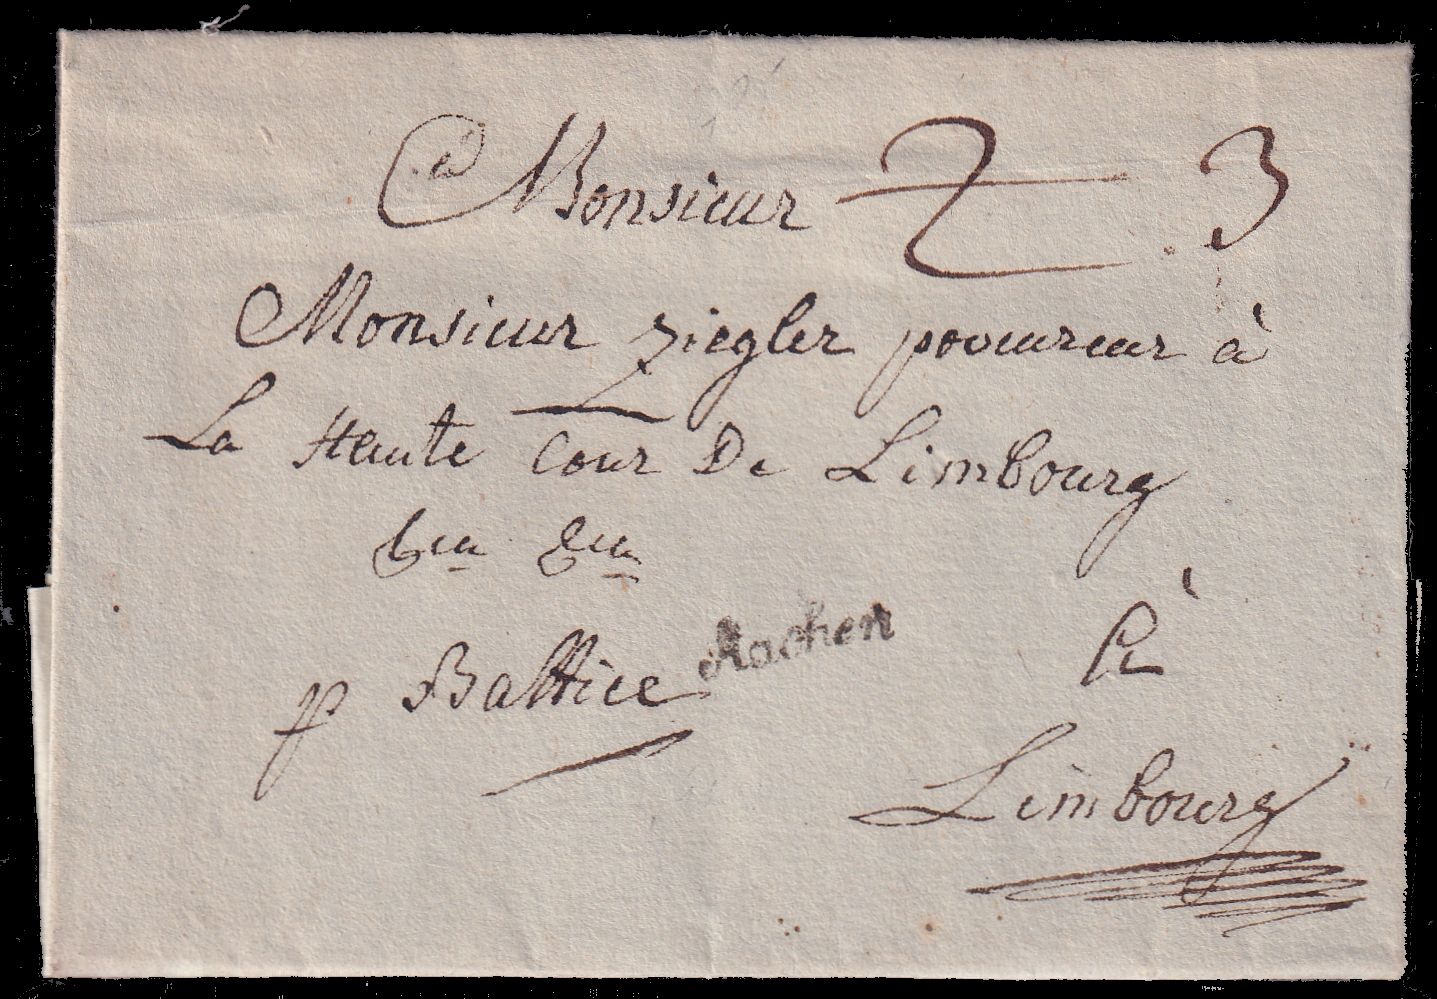 à Monsieur 2 3
Monsieur ziegler procureur à
La Haute Cour De Limbourg
p Battice Aachen
à
Limbourg